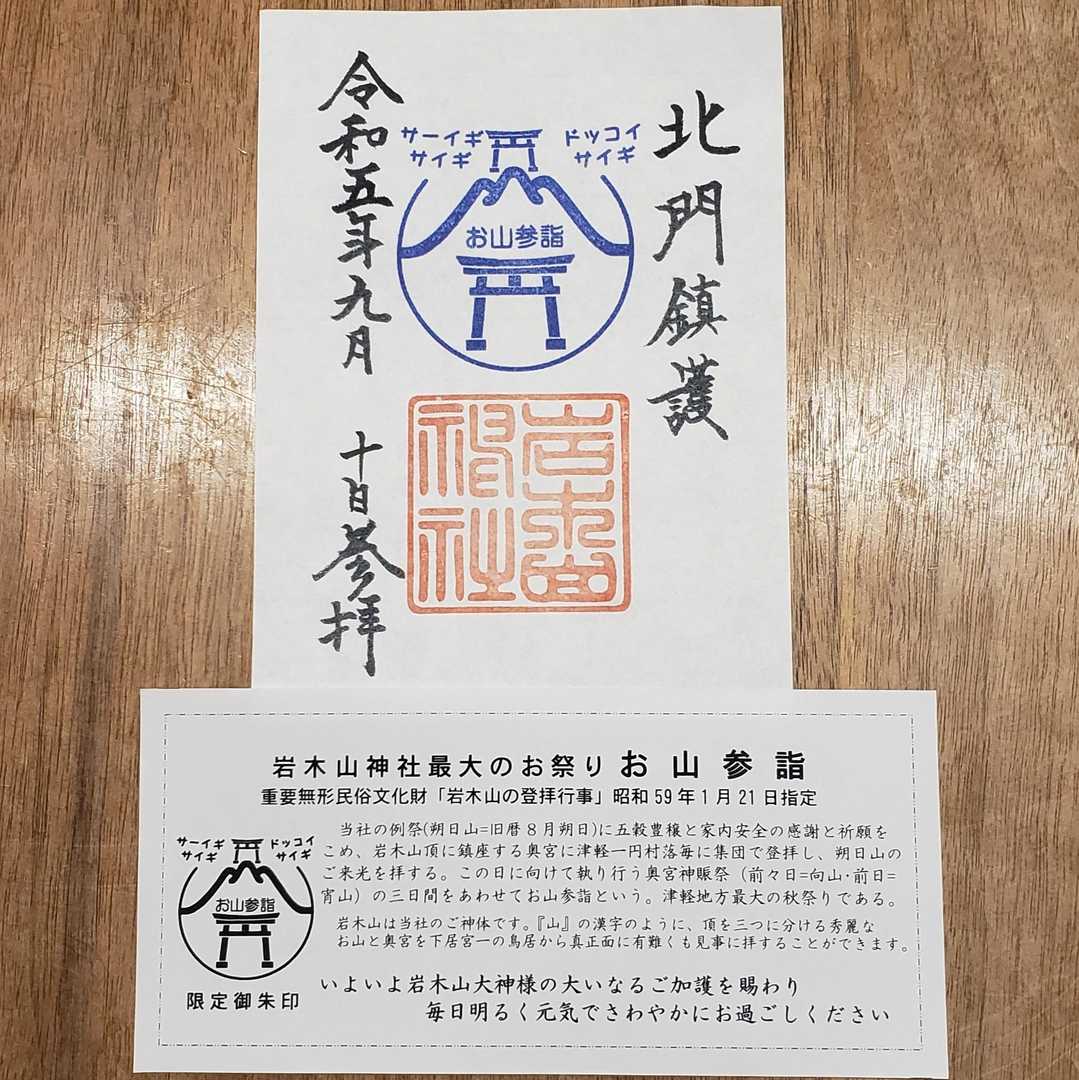 北門鎮護
サーイギ
サイギ
ドッコイ
サイギ
お山参詣
岩木山
神社
令和五年九月 十日参拝
岩木山神社最大のお祭り お山参詣
重要無形民俗文化財「岩木山の登拝行事」昭和59年1月21日指定
当社の例祭(朔日山=旧暦8月朔日)に五穀豊穣と家内安全の感謝と祈願を
こめ、岩木山頂に鎮座する奥宮に津軽一円村落毎に集団で登拝し、朔日山の
ご来光を拝する。この日に向けて執り行う奥宮神賑祭(前々日=向山・前日=
宵山)の三日間をあわせてお山参詣という。津軽地方最大の秋祭りである。
岩木山は当社のご神体です。『山』の漢字のように、頂を三つに分ける秀麗な
お山と奥宮を下居宮一の鳥居から真正面に有難くも見事に拝することができます。
サーイギ
サイギ
ドッコイ
サイギ
お山参詣
限定御朱印
いよいよ岩木山大神様の大いなるご加護を賜わり
毎日明るく元気でさわやかにお過ごしください